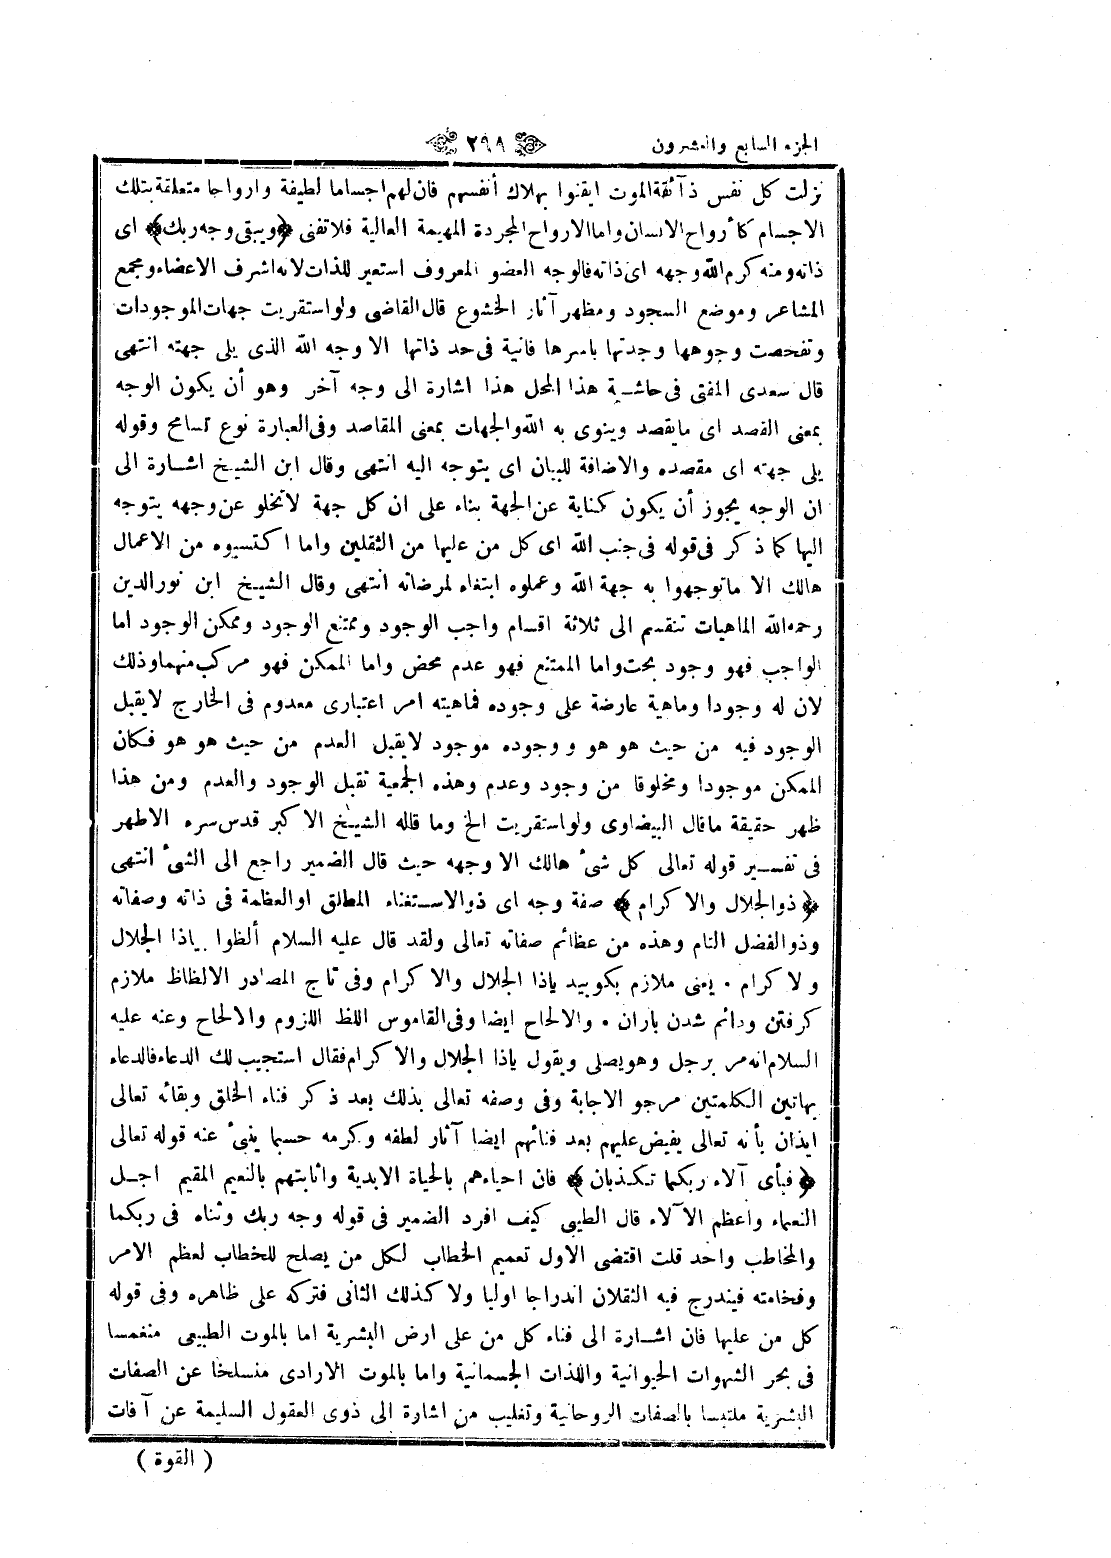 الجزء السابع والعشرون ٢٩٨
نزلت كل نفس ذآئقة الموت ايقنوا بهلاك أنفسهم فان لهم اجساما لطيفة وارواحا متعلقة بتلك
الاجسام كأرواح الانسان واما الارواح المجردة المهيمة العالية فلا تفنى ﴿ ويبقى وجه ربك ﴾ اى
ذاته ومنه كرم الله وجهه اى ذاته فالوجه العضو المعروف استعير للذات لانه اشرف الاعضاء ومجمع
المشاعر وموضع السجود ومظهر آثار الخشوع قال القاضى ولو استقريت جهات الموجودات
وتفحصت وجوهها وجدتها باسرها فانية فى حد ذاتها الا وجه الله الذى يلى جهته انتهى
قال سعدى المفتى فى حاشية هذا المحل هذا اشارة الى وجه آخر وهو أن يكون الوجه
بمعنى القصد اى ما يقصد وينوى به الله والجهات بمعنى المقاصد وفى العبارة نوع تسامح وقوله
يلى جهته اى مقصده والاضافة للبيان اى يتوجه اليه انتهى وقال ابن الشيخ اشارة الى
ان الوجه يجوز أن يكون كناية عن الجهة بناء على ان كل جهة لا تخلو عن وجهه يتوجه
اليها كما ذكر فى قوله فى جنب الله اى كل من عليها من الثقلين واما اكتسبوه من الاعمال
هالك الا ما توجهوا به جهة الله وعملوه ابتغاء لمرضاته انتهى وقال الشيخ ابن نورالدين
رحمه الله الماهيات تنقسم الى ثلاثة اقسام واجب الوجود وممتنع الوجود وممكن الوجود اما
الواجب فهو وجود بحت واما الممتنع فهو عدم محض واما الممكن فهو مركب منهما وذلك
لان له وجودا وماهية عارضة على وجوده فماهيته امر اعتبارى معدوم فى الخارج لا يقبل
الوجود فيه من حيث هو هو ووجوده موجود لا يقبل العدم من حيث هو هو فكان
الممكن موجودا ومخلوقا من وجود وعدم وهذه الجمعية تقبل الوجود والعدم ومن هذا
ظهر حقيقة ما قال البيضاوى ولو استقريت الخ وما قاله الشيخ الاكبر قدس سره الاطهر
فى تفسير قوله تعالى كل شئ هالك الا وجهه حيث قال الضمير راجع الى الشئ انتهى
﴿ ذو الجلال والاكرام ﴾ صفة وجه اى ذو الاستغناء المطلق او العظمة فى ذاته وصفاته
وذو الفضل التام وهذه من عظائم صفاته تعالى ولقد قال عليه السلام ألظوا بياذا الجلال
ولاكرام . يعنى ملازم بكوييد ياذا الجلال والاكرام وفى تاج المصادر الالظاظ ملازم
كرفتن ودائم شدن باران . والالحاح ايضا وفى القاموس اللظ اللزوم والالحاح وعنه عليه
السلام انه مر برجل وهو يصلى ويقول ياذا الجلال والاكرام فقال استجيب لك الدعاء فالدعاء
بهاتين الكلمتين مرجو الاجابة وفى وصفه تعالى بذلك بعد ذكر فناء الخلق وبقائه تعالى
ايذان بأنه تعالى يفيض عليهم بعد فنائهم ايضا آثار لطفه وكرمه حسبما ينبئ عنه قوله تعالى
﴿ فبأى آلاء ربكما تكذبان ﴾ فان احياءهم بالحياة الابدية واثابتهم بالنعيم المقيم اجل
النعماء واعظم الآلاء قال الطيبى كيف افرد الضمير فى قوله وجه ربك وثناه فى ربكما
والمخاطب واحد قلت اقتضى الاول تعميم الخطاب لكل من يصلح للخطاب لعظم الامر
وفخامته فيندرج فيه الثقلان اندراجا اوليا ولا كذلك الثانى فتركه على ظاهره وفى قوله
كل من عليها فان اشارة الى فناء كل من على ارض البشرية اما بالموت الطبيعى منغمسا
فى بحر الشهوات الحيوانية واللذات الجسمانية واما بالموت الارادى منسلخا عن الصفات
البشرية ملتبسا بالصفات الروحانية وتغليب من اشارة الى ذوى العقول السليمة عن آفات
( القوة )